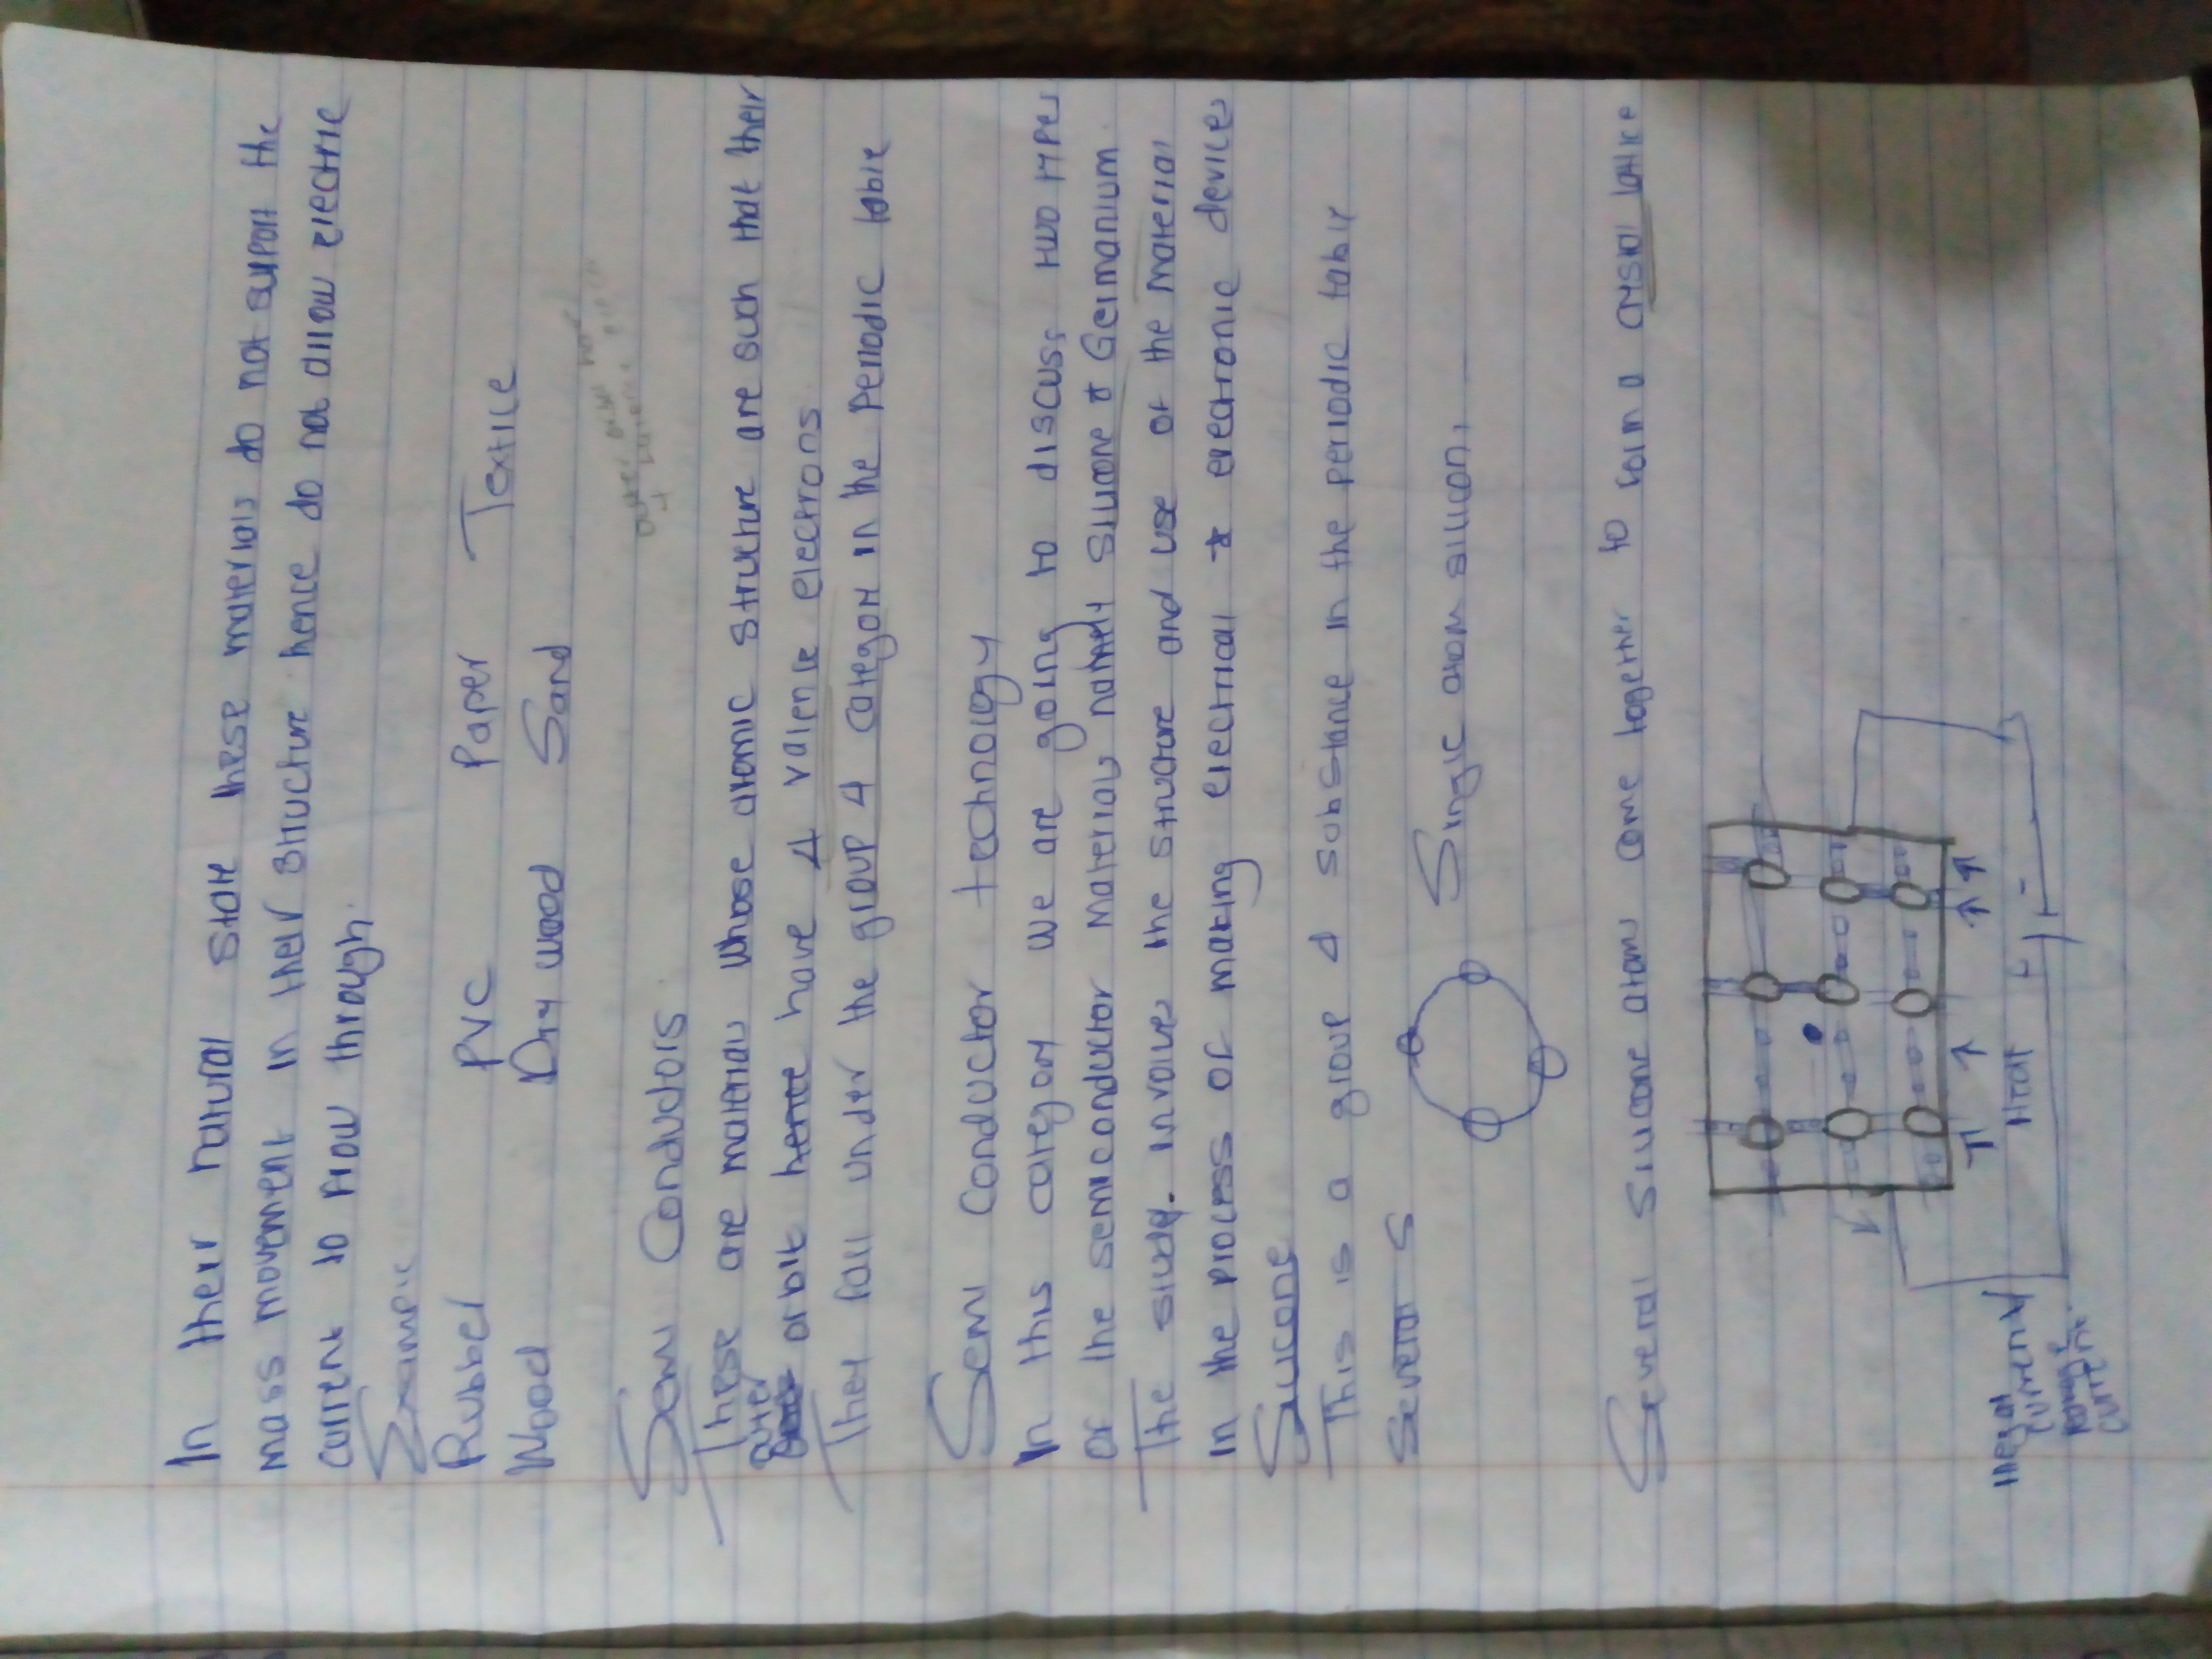 In their natural state these materials do not support the
mass movement in their structure hence do not allow electric
current to flow through.
Example
Rubber PVC Paper Textile
Wood Dry wood Sand
outer orbit have
4 valence
Semi Conductors
These are materials whose atomic structure are such that their
outer
orbit hence have 4 valence electrons
They fall under the group 4 category in the periodic table
Semi conductor technology
In this category we are going to discuss two types
of the semiconductor materials namely silicone & Germanium
The study involves the structure and use of the material
in the process of making electrical & electronic devices
Silicone
This is a group 4 substance in the periodic table
Several S
Single atom silicon
Several silicone atoms come together to form a crystal lattice
Heat + -
Illegal
current
current